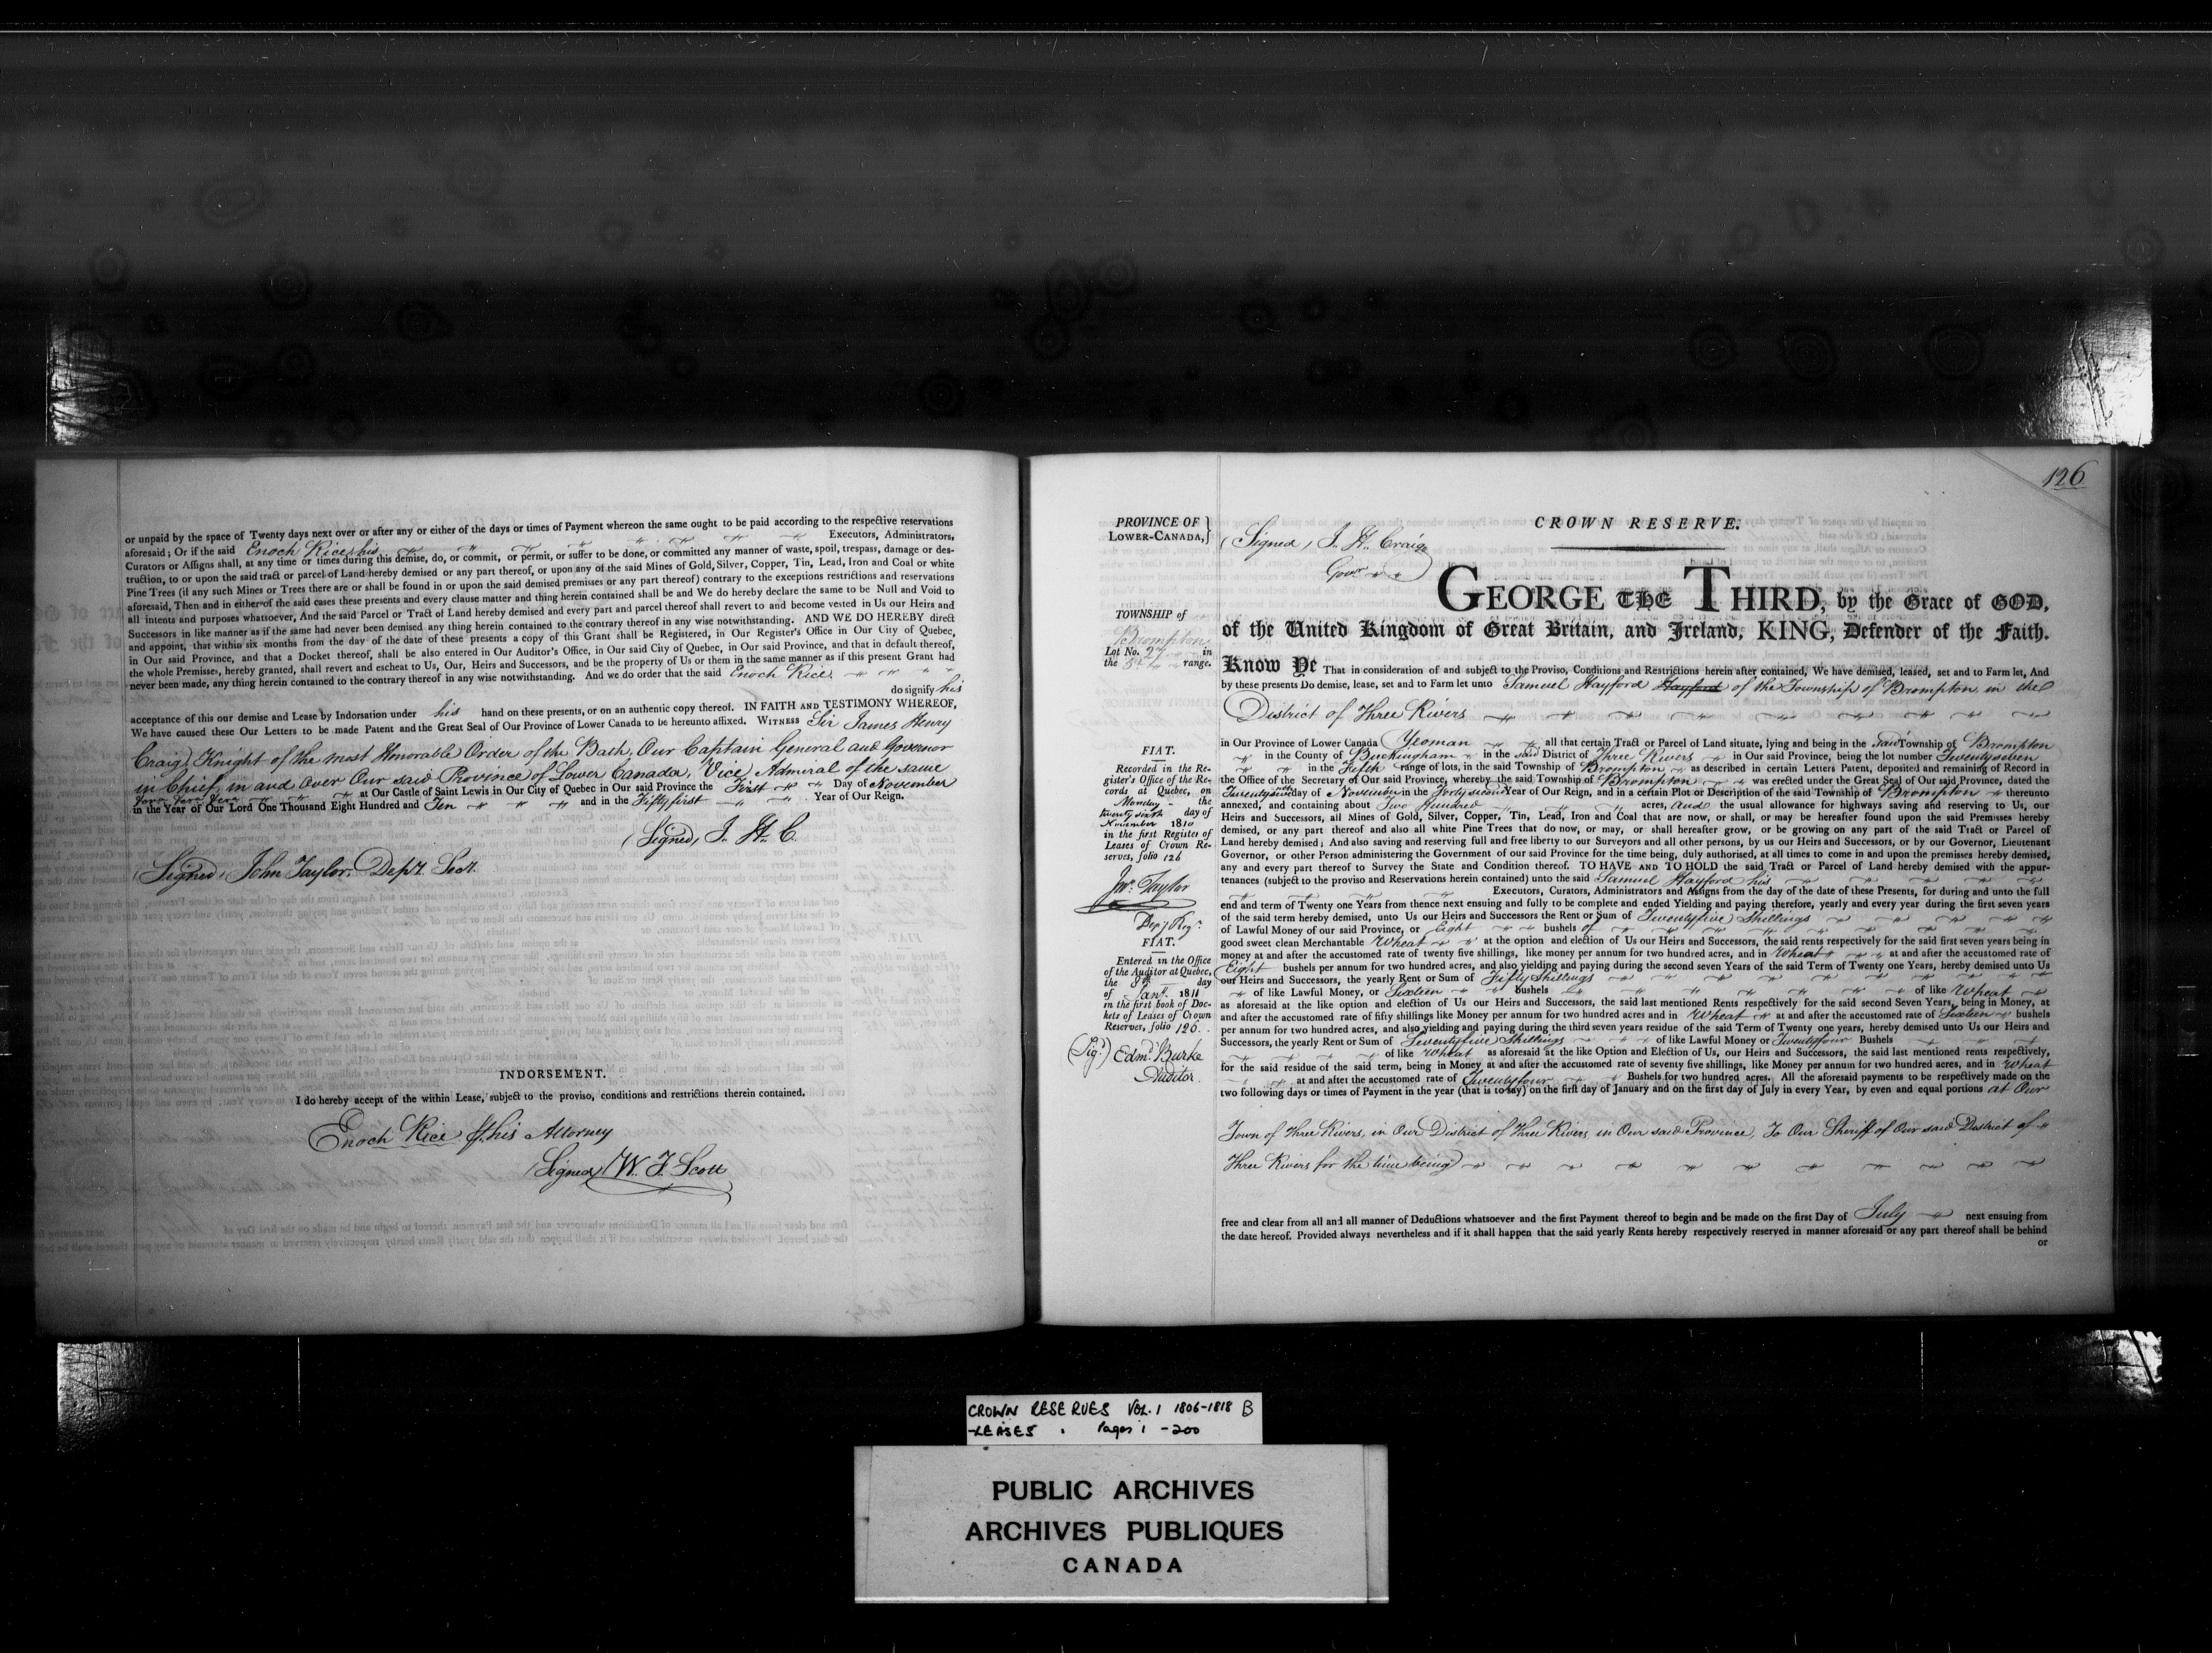 or unpaid by the space of Twenty days next over or after any or either of the days or times of Payment whereon the same ought to be paid according to the respective reservations
aforesaid; Or if the said Enoch Rice, his Executors, Administrators,
Curators or Assigns shall, at any time or times during this demise, do, or commit, or permit, or suffer to be done, or committed any manner of waste, spoil, trespass, damage or des-
truction, to or upon the said tract or parcel of Land hereby demised or any part thereof, or upon any of the said Mines of Gold, Silver, Copper, Tin, Lead, Iron and Coal or white
Pine Trees (if any such Mines or Trees there are or shall be found in or upon the said demised premises or any part thereof) contrary to the exceptions restrictions and reservations
aforesaid, Then and in either of the said cases these presents and every clause matter and thing herein contained shall be and We do hereby declare the same to be Null and Void to
all intents and purposes whatsoever, And the said Parcel or Tract of Land hereby demised and every part and parcel thereof shall revert to and become vested in Us our Heirs and
Successors in like manner as if the same had never been demised any thing herein contained to the contrary thereof in any wise notwithstanding. AND WE DO HEREBY direct
and appoint, that within six months from the day of the date of these presents a copy of this Grant shall be Registered, in Our Register's Office in Our City of Quebec,
in Our said Province, and that a Docket thereof, shall be also entered in Our Auditor's Office, in Our said City of Quebec, in Our said Province, and that in default thereof,
the whole Premises, hereby granted, shall revert and escheat to Us, Our, Heirs and Successors, and be the property of Us or them in the same manner as if this present Grant had
never been made, any thing herein contained to the contrary thereof in any wise notwithstanding. And we do order that the said Enoch Rice
do signify his
acceptance of this our demise and Lease by Indorsation under his hand on these presents, or on an authentic copy thereof. IN FAITH AND TESTIMONY WHEREOF,
We have caused these Our Letters to be made Patent and the Great Seal of Our Province of Lower Canada to be hereunto affixed. WITNESS Sir James Henry
Craig, Knight of the most Honorable Order of the Bath, Our Captain General and Governor
in Chief, in and over Our said Province of Lower Canada, Vice Admiral of the same
at Our Castle of Saint Lewis in Our City of Quebec in Our said Province the First Day of November
in the Year of Our Lord One Thousand Eight Hundred and Ten and in the Fifty first Year of Our Reign.
(Signed) J. H. C.
(Signed) John Taylor, Depy. Secy.
INDORSEMENT.
I do hereby accept of the within Lease, subject to the proviso, conditions and restrictions therein contained.
Enoch Rice his Attorney
(Signed) W. F. Scott
126
PROVINCE OF
LOWER-CANADA,
CROWN RESERVE.
(Signed) J. H. Craig
Govr.
GEORGE THE THIRD, by the Grace of GOD,
of the United Kingdom of Great Britain, and Ireland, KING, Defender of the Faith.
TOWNSHIP of
Brompton
Lot No. 27 in
the 5th range.
Know Ye That in consideration of and subject to the Proviso, Conditions and Restrictions herein after contained, We have demised, leased, set and to Farm let, And
by these presents Do demise, lease, set and to Farm let unto Samuel Hayford Hayford of the Township of Brompton in the
District of Three Rivers
in Our Province of Lower Canada Yeoman all that certain Tract or Parcel of Land situate, lying and being in the said Township of Brompton
in the County of Buckingham in the said District of Three Rivers in Our said Province, being the lot number Twenty seven
in the Fifth range of lots, in the said Township of Brompton as described in certain Letters Patent, deposited and remaining of Record in
the Office of the Secretary of Our said Province, whereby the said Township of Brompton was erected under the Great Seal of Our said Province, dated the
day of November in the Forty second Year of Our Reign, and in a certain Plot or Description of the said Township of Brompton thereunto
annexed, and containing about Two Hundred acres, and the usual allowance for highways saving and reserving to Us, our
Heirs and Successors, all Mines of Gold, Silver, Copper, Tin, Lead, Iron and Coal that are now, or shall, or may be hereafter found upon the said Premisses hereby
demised, or any part thereof and also all white Pine Trees that do now, or may, or shall hereafter grow, or be growing on any part of the said Tract or Parcel of
Land hereby demised; And also saving and reserving full and free liberty to our Surveyors and all other persons, by us our Heirs and Successors, or by our Governor, Lieutenant
Governor, or other Person administering the Government of our said Province for the time being, duly authorised, at all times to come in and upon the premises hereby demised,
any and every part thereof to Survey the State and Condition thereof. TO HAVE AND TO HOLD the said Tract or Parcel of Land hereby demised with the appur-
tenances (subject to the proviso and Reservations herein contained) unto the said Samuel Hayford his
Executors, Curators, Administrators and Assigns from the day of the date of these Presents, for during and unto the full
end and term of Twenty one Years from thence next ensuing and fully to be complete and ended Yielding and paying therefore, yearly and every year during the first seven years
of the said term hereby demised, unto Us our Heirs and Successors the Rent or Sum of Twenty five Shillings
of Lawful Money of our said Province, or Eight bushels of
good sweet clean Merchantable Wheat at the option and election of Us our Heirs and Successors, the said rents respectively for the said first seven years being in
money at and after the accustomed rate of twenty five shillings, like money per annum for two hundred acres, and in Wheat at and after the accustomed rate of
Eight bushels per annum for two hundred acres, and also yielding and paying during the second seven Years of the said Term of Twenty one Years, hereby demised unto Us
our Heirs and Successors, the yearly Rent or Sum of Fifty Shillings
of like Lawful Money, or Sixteen bushels of like Wheat
as aforesaid at the like option and election of Us our Heirs and Successors, the said last mentioned Rents respectively for the said second Seven Years, being in Money, at
and after the accustomed rate of fifty shillings like Money per annum for two hundred acres and in Wheat at and after the accustomed rate of Sixteen bushels
per annum for two hundred acres, and also yielding and paying during the third seven years residue of the said Term of Twenty one years, hereby demised unto Us our Heirs and
Successors, the yearly Rent or Sum of Seventy five Shillings of like Lawful Money or Twenty four Bushels
of like Wheat as aforesaid at the like Option and Election of Us, our Heirs and Successors, the said last mentioned rents respectively,
for the said residue of the said term, being in Money at and after the accustomed rate of seventy five shillings, like Money per annum for two hundred acres, and in Wheat
at and after the accustomed rate of Twenty four Bushels for two hundred acres. All the aforesaid payments to be respectively made on the
two following days or times of Payment in the year (that is to say) on the first day of January and on the first day of July in every Year, by even and equal portions at Our
Town of Three Rivers, in Our District of Three Rivers in Our said Province, To Our Sheriff of Our said District of
Three Rivers for the time being
free and clear from all and all manner of Deductions whatsoever and the first Payment thereof to begin and be made on the first Day of July next ensuing from
the date hereof. Provided always nevertheless and if it shall happen that the said yearly Rents hereby respectively reserved in manner aforesaid or any part thereof shall be behind
or
FIAT.
Recorded in the Re-
gister's Office of the Re-
cords at Quebec, on
Monday the
twenty sixth day of
November 1810
in the first Register of
Leases of Crown Re-
serves, folio 126
Jno. Taylor
Depy Regr.
FIAT.
Entered in the Office
of the Auditor at Quebec,
the 8th day
of Jany. 1811
in the first book of Doc-
kets of Leases of Crown
Reserves, folio 126.
(Sigd.) Edmd. Burke
Auditor.
CROWN RESERVES VOL. 1 1806-1818 B
-LEASES Pages 1 - 200
PUBLIC ARCHIVES
ARCHIVES PUBLIQUES
CANADA